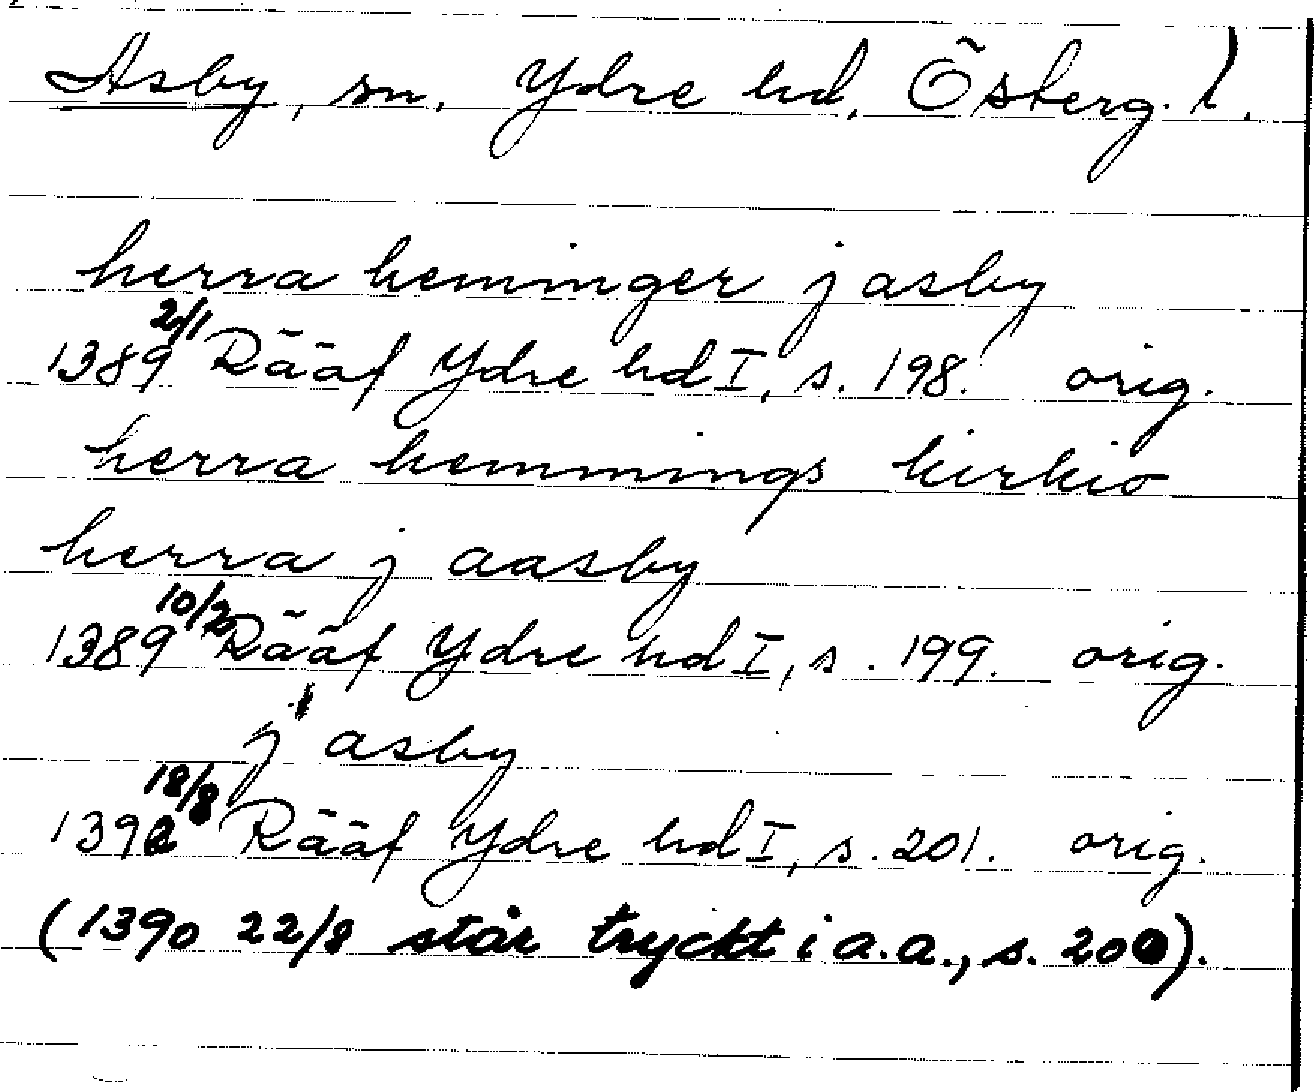 Asby, sn, Ydre hd, Österg. l.
herra heminger j asby
1389 2/1 Rääf Ydre hd I, s. 198. orig.
herra hemmings kirkio
herra j aasby
1389 10/2 Rääf Ydre hd I, s. 199. orig.
j asby
1392 18/8 Rääf Ydre hd I, s. 201. orig.
(1390 22/8 står tryckt i a.a., s. 200).